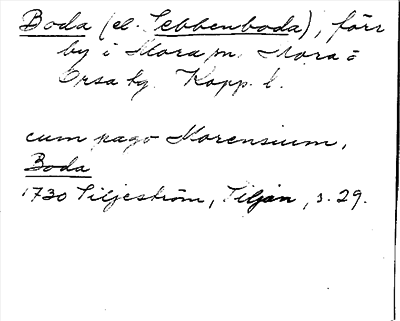 Boda (el. Tebbenboda), förr
by i Mora sn. Mora o
Orsa tg. Kopp. l.
cum pago Morensium,
Boda
1730 Siljeström, Siljan, s. 29.